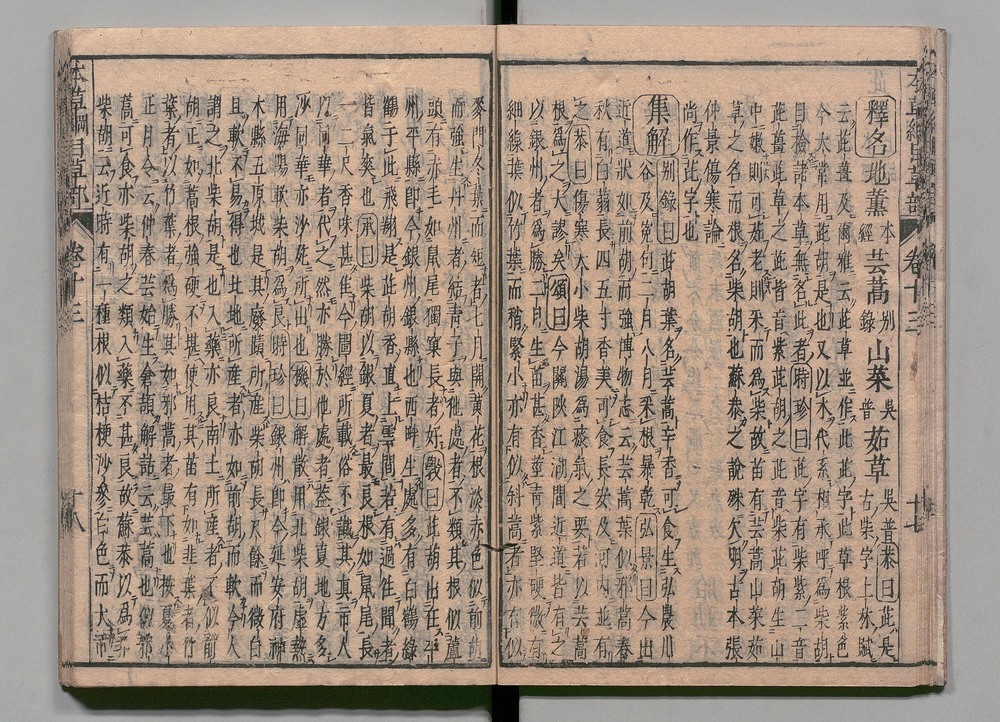 本草綱目草部 卷十三 十七
釋名 地薰 本經 芸蒿 別錄 山菜 吳普 茹草 吳普 恭曰茈是
古柴字上林賦
云茈薑及爾雅云茈草並作此茈字此草根紫色
今太常用茈胡是也又以木代系相承呼爲柴胡
且檢諸本草無名此者時珍曰茈字有柴紫二音
茈薑茈草之茈皆音紫茈胡之茈音柴茈胡生山
中嫩則可茹老則采而爲柴故苗有芸蒿山菜茹
草之名而根名柴胡也蘇恭之說殊欠明古本張
仲景傷寒論
尚作茈字也
集解 別錄曰茈胡葉名芸蒿辛香可食生弘農川
谷及冤句二月八月采根暴乾弘景曰今出
近道狀如前胡而強博物志云芸蒿葉似邪蒿春
秋有白蒻長四五寸香美可食長安及河內並有
之恭曰傷寒大小柴胡湯爲痰氣之要若以芸蒿
根爲之大謬矣頌曰今關陝江湖間近道皆有之
以銀州者爲勝二月生苗甚香莖青紫堅硬微有
細線葉似竹葉而稍緊小亦有似斜蒿者亦有似
麥門冬葉而短者七月開黃花根淡赤色似前胡
而強生丹州者結青子與他處者不類其根似蘆
頭有赤毛如鼠尾獨窠長者好斆曰茈胡出在平
州平縣即今銀州銀縣也西畔生處多有白鶴綠
鶴于此飛翔是茈胡香直上雲間若有過往聞者
皆氣爽也承曰柴胡以銀夏者最良根如鼠尾長
一二尺香味甚佳今圖經所載俗不識其真市人
以同華者代之然亦勝於他處者蓋銀夏地方多
沙同華亦沙苑所出也機曰解散用北柴胡虛熱
用海陽軟柴胡爲良時珍曰銀州即今延安府神
木縣五原城是其廢蹟所產柴胡長尺餘而微白
且軟不易得也北地所產者亦如前胡而軟今人
謂之北柴胡是也入藥亦良南土所產者不似前
胡正如蒿根強硬不堪使用其苗有如韭葉者竹
葉者以竹葉者爲勝其如邪蒿者最下也按夏小
正月令云仲春芸始生倉頡解詁云芸蒿也似邪
蒿可食亦柴胡之類入藥不甚良故蘇恭以爲非
柴胡云近時有一種根似桔梗沙參白色而大市
本草綱目草部 卷十三 十八